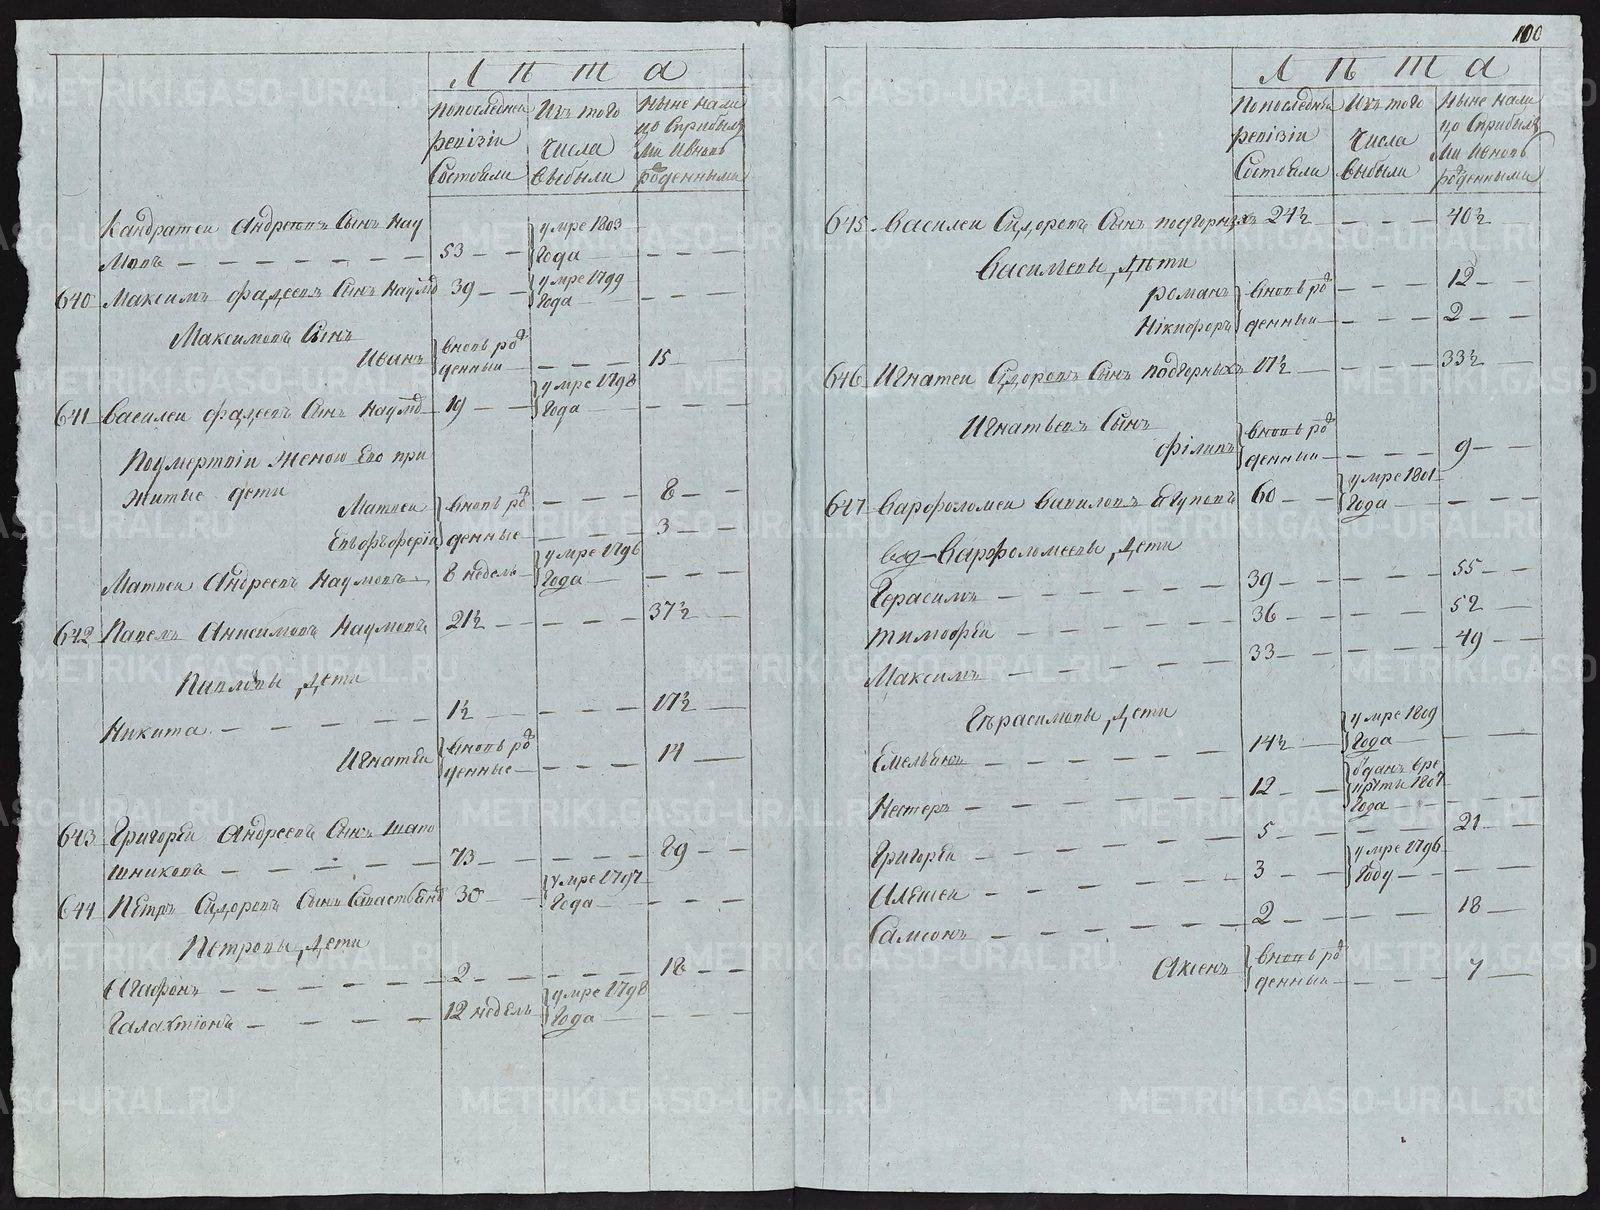 Лѣта
Попоследнеи Изъ того Ныне нали
ревизіи числа цо Сприбылы
Состояли выбыли ми ивновь
рожденными
Кандратеи Андреевъ Сынъ Нау
мовъ 53 умре 1803 Года
640 Максимъ Фадеевъ Сынъ Наумо 39 умре 1799 Года
Максимовъ Сынъ
Иванъ вновь рож денныи 15
641 Василеи Фадеевъ Сынъ Наумо 19 умре 1798 Года
Поумертвіи Женою Ево при
житые дети
Матвеи вновь рож 8
денные 3
Матвеи Андреевъ Наумовъ 8 недель умре 1796 Года
642 Павелъ Анисимовъ Наумовъ 21½ 37½
Павловы дети
Никита 1½ 17½
Игнатеи вновь рож денные 14
643 Григореи Андреевъ Сынъ Шапо
шниковъ 73 89
644 Петръ Сидоровъ Сынъ 30 умре 1797 Года
Петровы дети
Агафонъ 2 18
Галахтіонъ 12 недель умре 1798 Года
100
Лѣта
Попоследнеи Изъ того Ныне нали
ревизіи числа цо Сприбылы
Состояли выбыли ми ивновь
рожденными
645 Василеи Сидоровъ Сынъ подгорныхъ 24½ 40½
Васильевы дѣти
Романъ вновь рож 12
Нікифоръ денныи 2
646 Игнатеи Сидоровъ Сынъ подгорныхъ 17½ 33½
Игнатьевъ Сынъ
Філипъ вновь рож денныи 9
647 Варфоломеи Вавиловъ 60 умре 1801 Года
Варфоломеевы дети
Герасимъ 39 55
Тимофеи 36 52
Максимъ 33 49
Герасимовы дети
Емельянъ 14½ умре 1809 Года
Нестеръ 12 отданъ вре круты 1807 Года
Григореи 5 21
Алексеи 3 умре 1796 Году
Самсонъ 2 18
вновь рож денныи 7